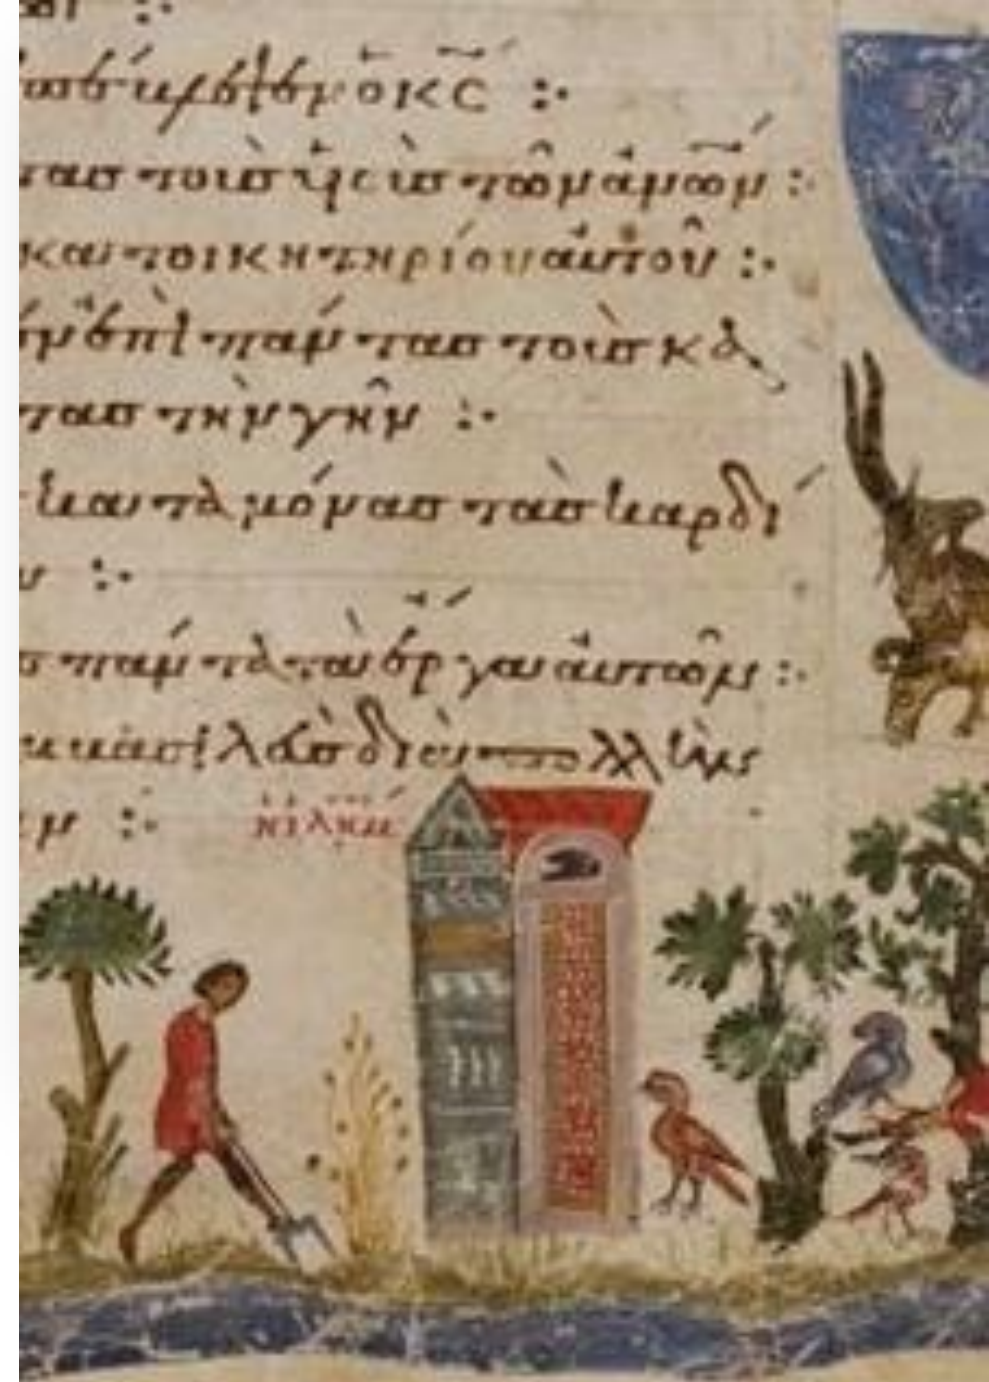 έβλεψεν ὁ κς :·
τας τοὺς υἱοὺς τῶν ἀνων :·
κατοικητηρίου αὐτοῦ :·
εν ἐπὶ πάντας τοὺς κα
τας τὴν γῆν :·
κατὰ μόνας τὰς καρδί
ν :·
ς πάντα τὰ ἔργα αὐτῶν :·
βασιλεὺς διὰ
ν :·